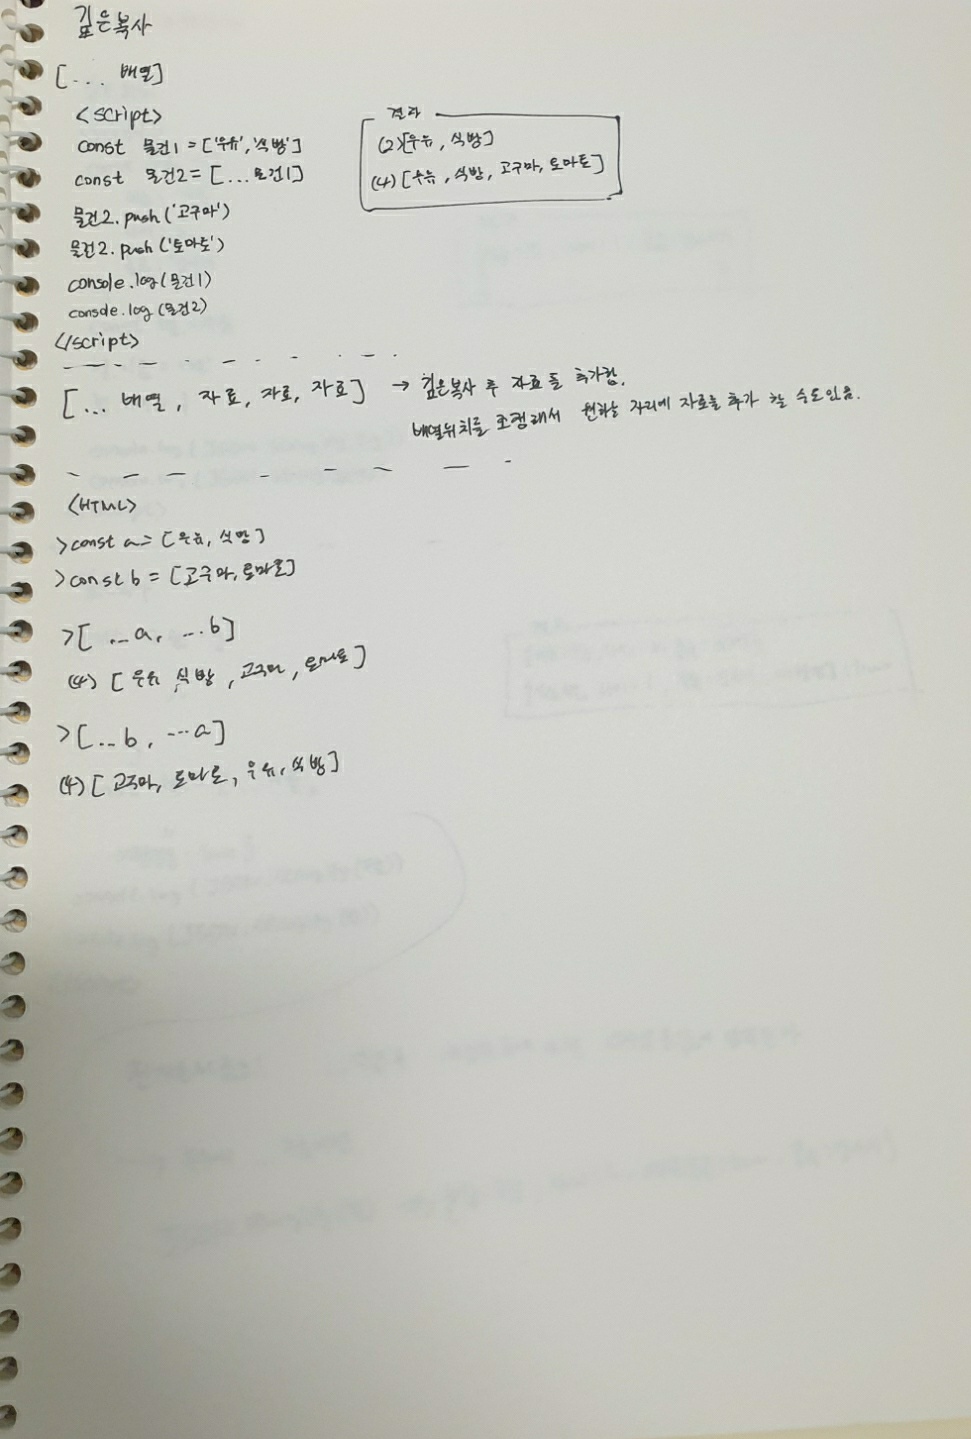 깊은복사
[... 배열]
<script>
const 물건1 = ['우유', '식빵']
const 물건2 = [...물건1]
물건2.push('고구마')
물건2.push('토마토')
console.log(물건1)
console.log(물건2)
</script>
결과
(2)[우유, 식빵]
(4)[우유, 식빵, 고구마, 토마토]
[... 배열, 자료, 자료, 자료] → 깊은복사 후 자료들 추가함.
배열위치를 조정해서 원하는 자리에 자료를 추가 할 수도있음.
<HTML>
>const a = [우유, 식빵]
>const b = [고구마, 토마토]
>[...a, ...b]
(4) [우유, 식빵, 고구마, 토마토]
>[...b, ...a]
(4) [고구마, 토마토, 우유, 식빵]